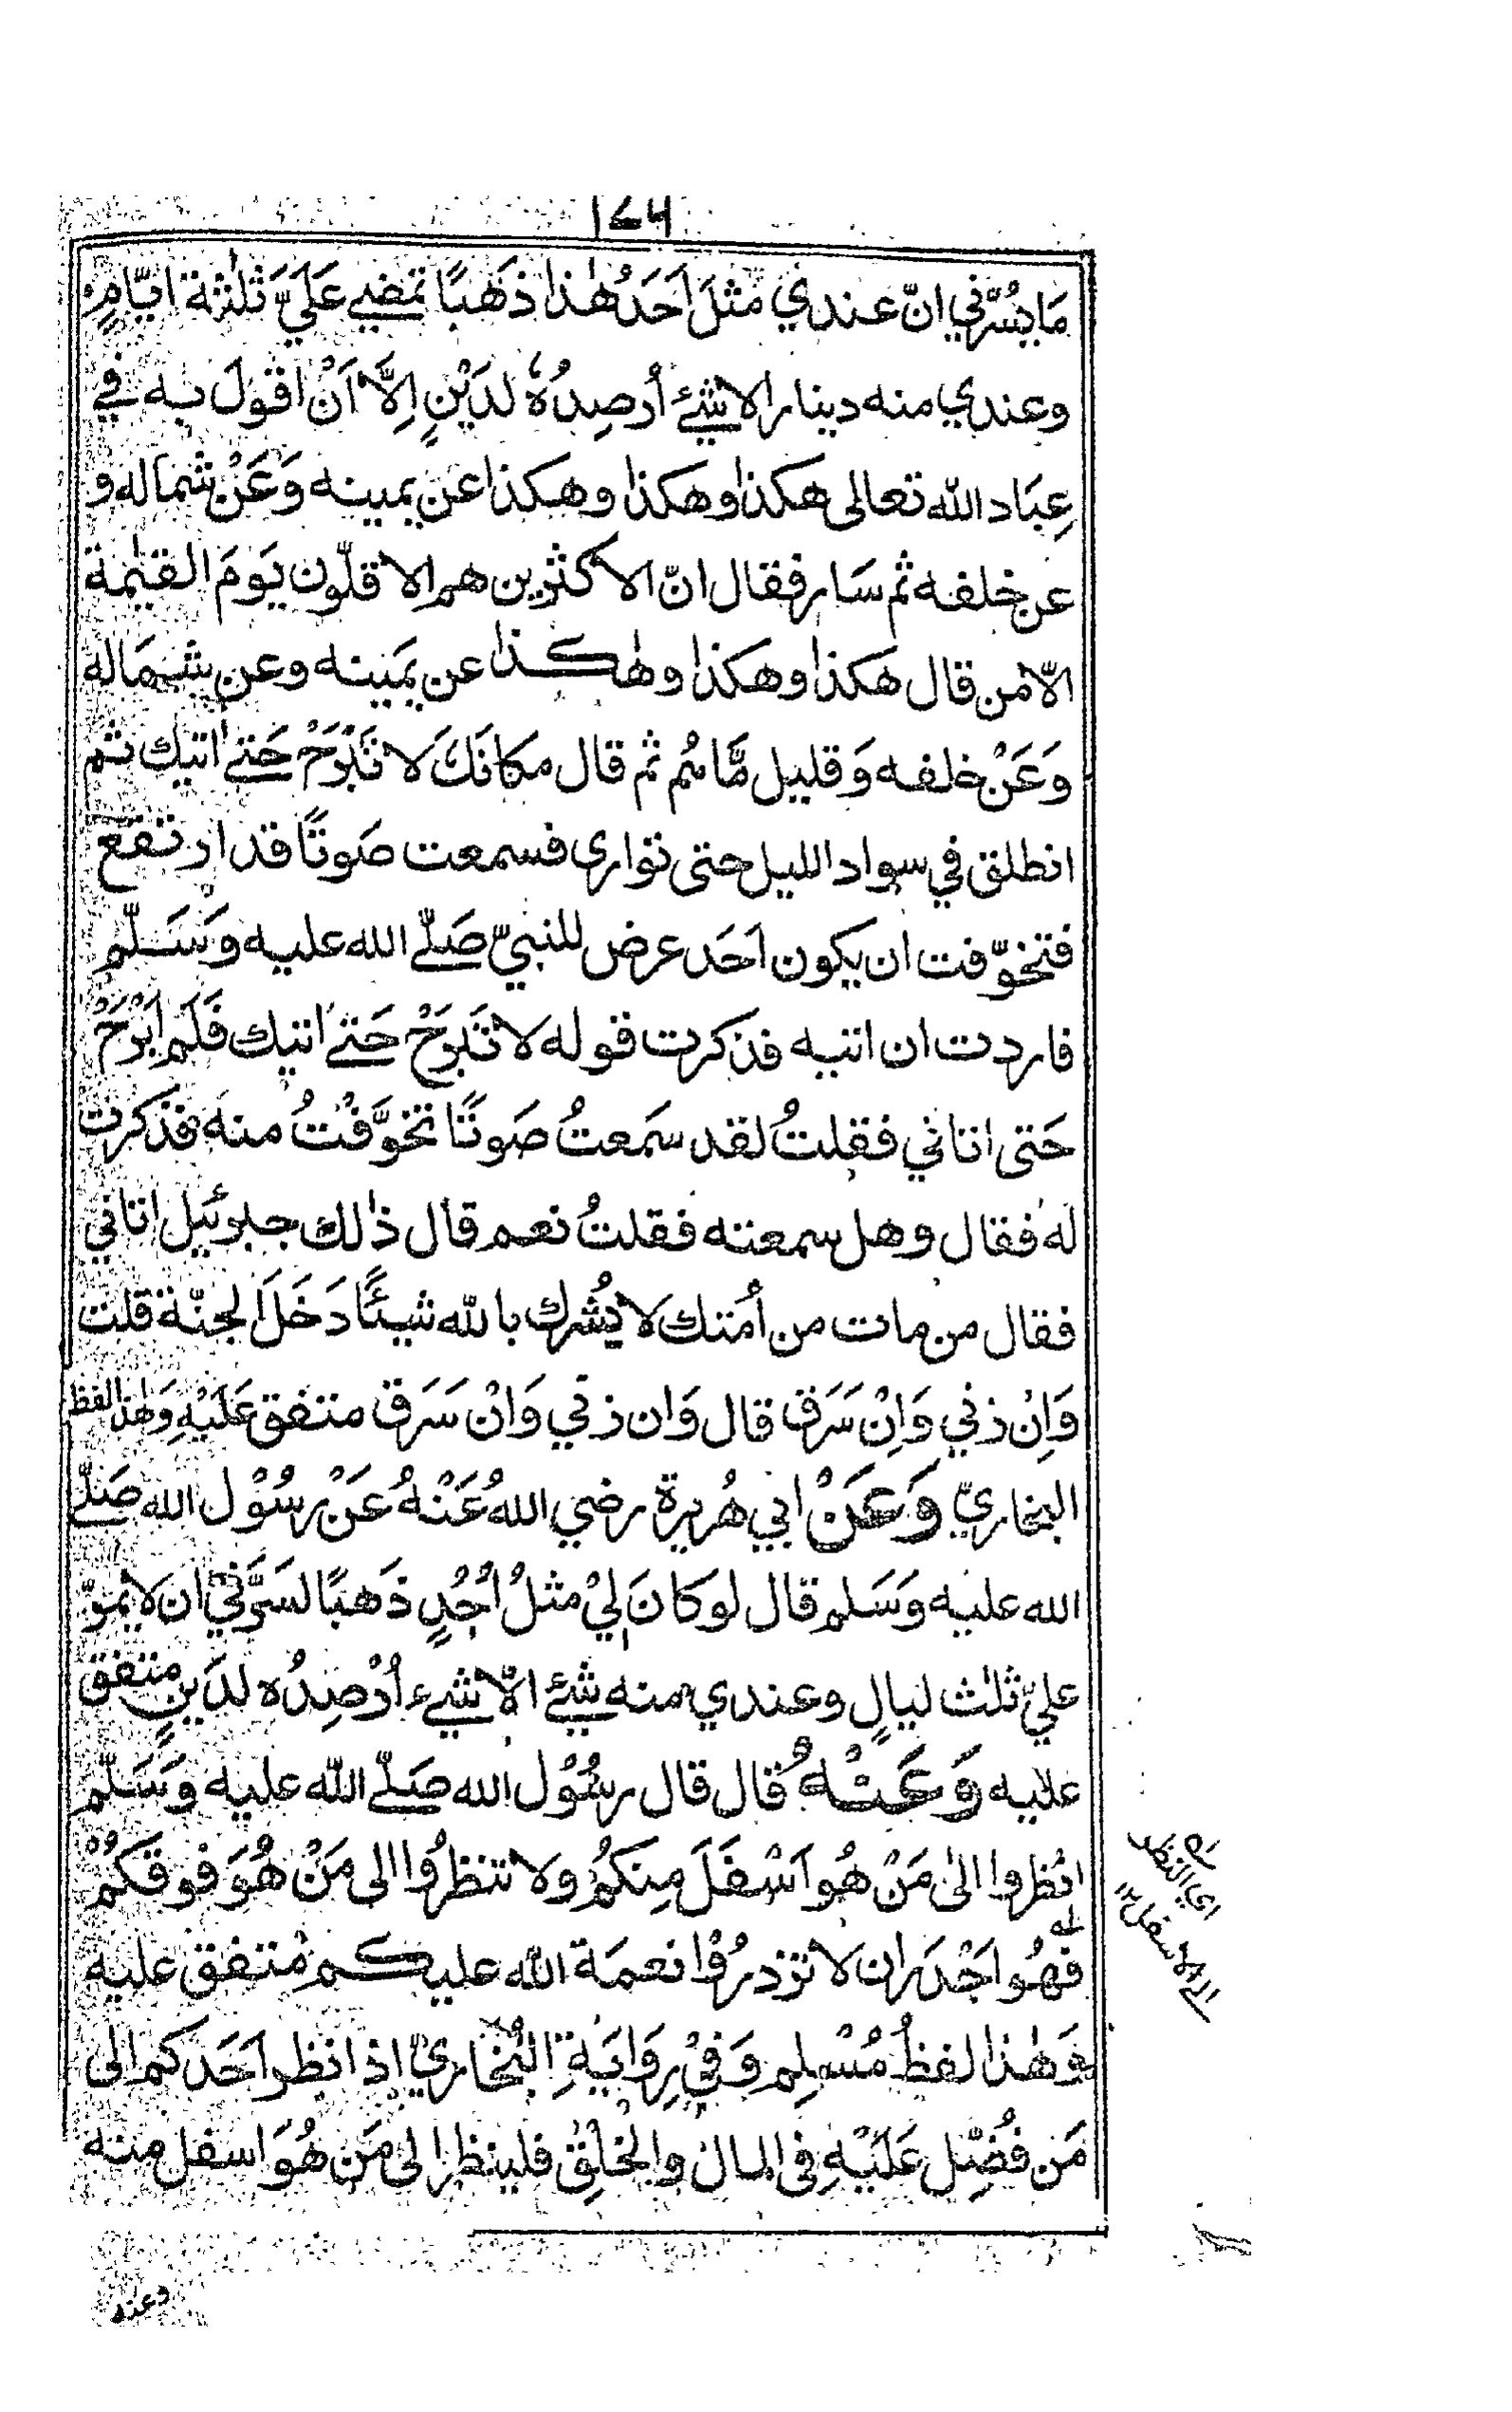 ۱۷۶
مَا يَسُرُّني انّ عندي مثلَ اَحَدُ هٰذا ذَهَبًا تمضي عَلَيَّ ثلٰثة ايّامٍ
وعندي منه دينار الا شئ أرصِدُهٗ لدَيْنٍ اِلَّا اَنْ اقولَ به في
عِبَاد الله تعالى هكذا وهكذا وهكذا عن يمينه وَعَنْ شماله و
عن خلفه ثم سَار فقال انّ الاكثرين هم الاقلّون يَومَ القيٰمة
الّا من قال هٰكذا وهكذا وهٰكذا عن يَمينه وعن شِماله
وَعَنْ خلفه وَقليل مَّا هُم ثم قال مكانَكَ لا تَبْرَحْ حَتىٰ اٰتيك ثم
انطلق في سواد الليل حتى توارى فسمعت صَوتًا قد ارتفع
فتخوّفت ان يكون اَحَد عرض للنبيّ صَلّى الله عليه وَسَلَّم
فاردت ان اتيه فذكرت قوله لا تَبْرَحْ حَتىٰ اٰتيك فَلَم اَبْرَحْ
حَتى اتاني فقلتُ لقد سَمعتُ صَوتًا تخوَّفْتُ منه فذكرت
لَهٗ فقال وهل سمعته فقلتُ نعم قال ذٰلك جبرئيل اتاني
فقال من مات من أمّتك لا يُشرك بالله شيئًا دَخَلَ الجنّة قلت
وَاِنْ زنٰي وَاِنْ سَرَق قال وَان زنٰي وَانْ سَرَق متفق عَلَيْهِ وَهٰذا لفظ
البخاريّ وَعَنْ ابي هُريرة رضي اللهُ عَنْهُ عَنْ رسُوْل الله صَلّى
الله عليه وَسَلم قال لو كانَ لِيْ مثلُ اُحُدٍ ذَهبًا لسَرَّنيْ ان لا يمرّ
عليّ ثلٰث ليالٍ وعندي منه شئ الّا شيء اُرْصِدُه لدَينٍ متفق
عليه وَعَنْهُ قال قال رسُوْل الله صَلّى اللّه عليه وَسَلَّم
انْظروا الىٰ مَنْ هُو اَسْفَلَ مِنكُمْ ولا تنظرُوا الى مَنْ هُوَ فوقكُمْ
فهُو اجْدَر ان لا تزدرُوْا نعمَة اللّه عليكم مُتفق عليه
وَهٰذا لفظُ مُسْلِم وَفيْ رِوَايَةِ الْبُخاريّ اذا نظر اَحَدكم الى
مَن فُضِّل عَلَيْهِ فى المال والخلْقِ فلينظر الى مَن هُوَ اسفل منه
له
اي النظر
الى الاسفل ۱۲
وعند